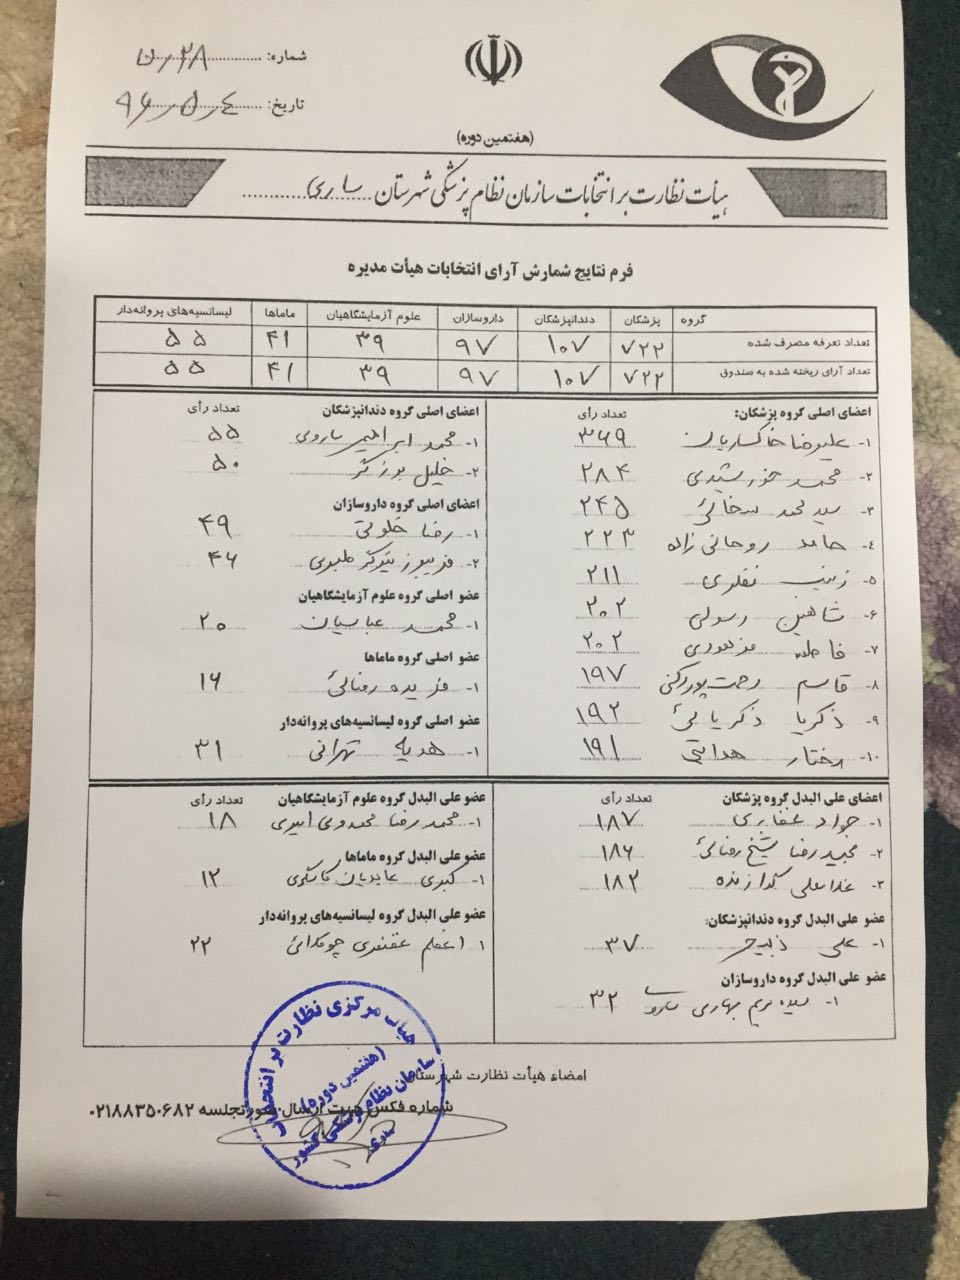 شماره: ۲۸ر۵
تاریخ: ۹۶ر۵ر۴
(هفتمین دوره)
هیأت نظارت بر انتخابات سازمان نظام پزشکی شهرستان ساری
فرم نتایج شمارش آرای انتخابات هیأت مدیره
گروه پزشکان دندانپزشکان داروسازان علوم آزمایشگاهیان ماماها لیسانسیه‌های پروانه‌دار
تعداد تعرفه مصرف شده ۷۲۲ ۱۰۷ ۹۷ ۳۹ ۴۱ ۵۵
تعداد آرای ریخته شده به صندوق ۷۲۲ ۱۰۷ ۹۷ ۳۹ ۴۱ ۵۵
اعضای اصلی گروه پزشکان: تعداد رأی
۱- علیرضا خاکساریان ۳۶۹
۲- محمد خورشیدی ۲۸۴
۳- سید محمد سخائی ۲۴۵
۴- حامد روحانی زاده ۲۲۳
۵- زینب نفلوی ۲۱۱
۶- شاهین رسولی ۲۰۲
۷- فاطمه مزهودی ۲۰۲
۸- قاسم رحمت‌پور رکنی ۱۹۷
۹- ذکریا ذکریائی ۱۹۲
۱۰- هدایتی ۱۹۱
اعضای اصلی گروه دندانپزشکان تعداد رأی
۱- محمد ابراهیم ساروی ۵۵
۲- خلیل برزگر ۵۰
اعضای اصلی گروه داروسازان
۱- رضا خلوتی ۴۹
۲- فریبرز طبری ۴۶
عضو اصلی گروه علوم آزمایشگاهیان
۱- محمد عباسیان ۲۰
عضو اصلی گروه ماماها
۱- فریده رضائی ۱۶
عضو اصلی گروه لیسانسیه‌های پروانه‌دار
۱- هدیه تهرانی ۳۱
اعضای علی البدل گروه پزشکان تعداد رأی
۱- جواد غفاری ۱۸۷
۲- مجید رضا شیخ رضائی ۱۸۶
۳- غلامعلی گدازنده ۱۸۲
عضو علی البدل گروه دندانپزشکان:
۱- علی ذبیح ۳۷
عضو علی البدل گروه داروسازان
۱- سیده مریم بهاری ۳۲
عضو علی البدل گروه علوم آزمایشگاهیان تعداد رأی
۱- محمد رضا مهدوی امیری ۱۸
عضو علی البدل گروه ماماها
۱- کبری عابدیان ۱۲
عضو علی البدل گروه لیسانسیه‌های پروانه‌دار
۱ اعظم غضنفری ۲۲
امضاء هیأت نظارت شهرستان
شماره فکس جهت ارسال صورتجلسه ۰۲۱۸۸۳۵۰۶۸۲
هیات مرکزی نظارت بر انتخابات
(هفتمین دوره)
سازمان نظام پزشکی کشور